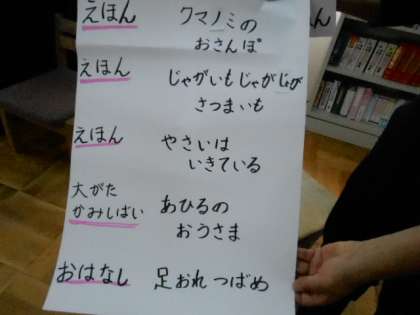 えほん クマノミの
おさんぽ
えほん じゃがいもじゃがじゃが
さつまいも
えほん やさいは
いきている
大がた
かみしばい あひるの
おうさま
おはなし 足おれつばめ